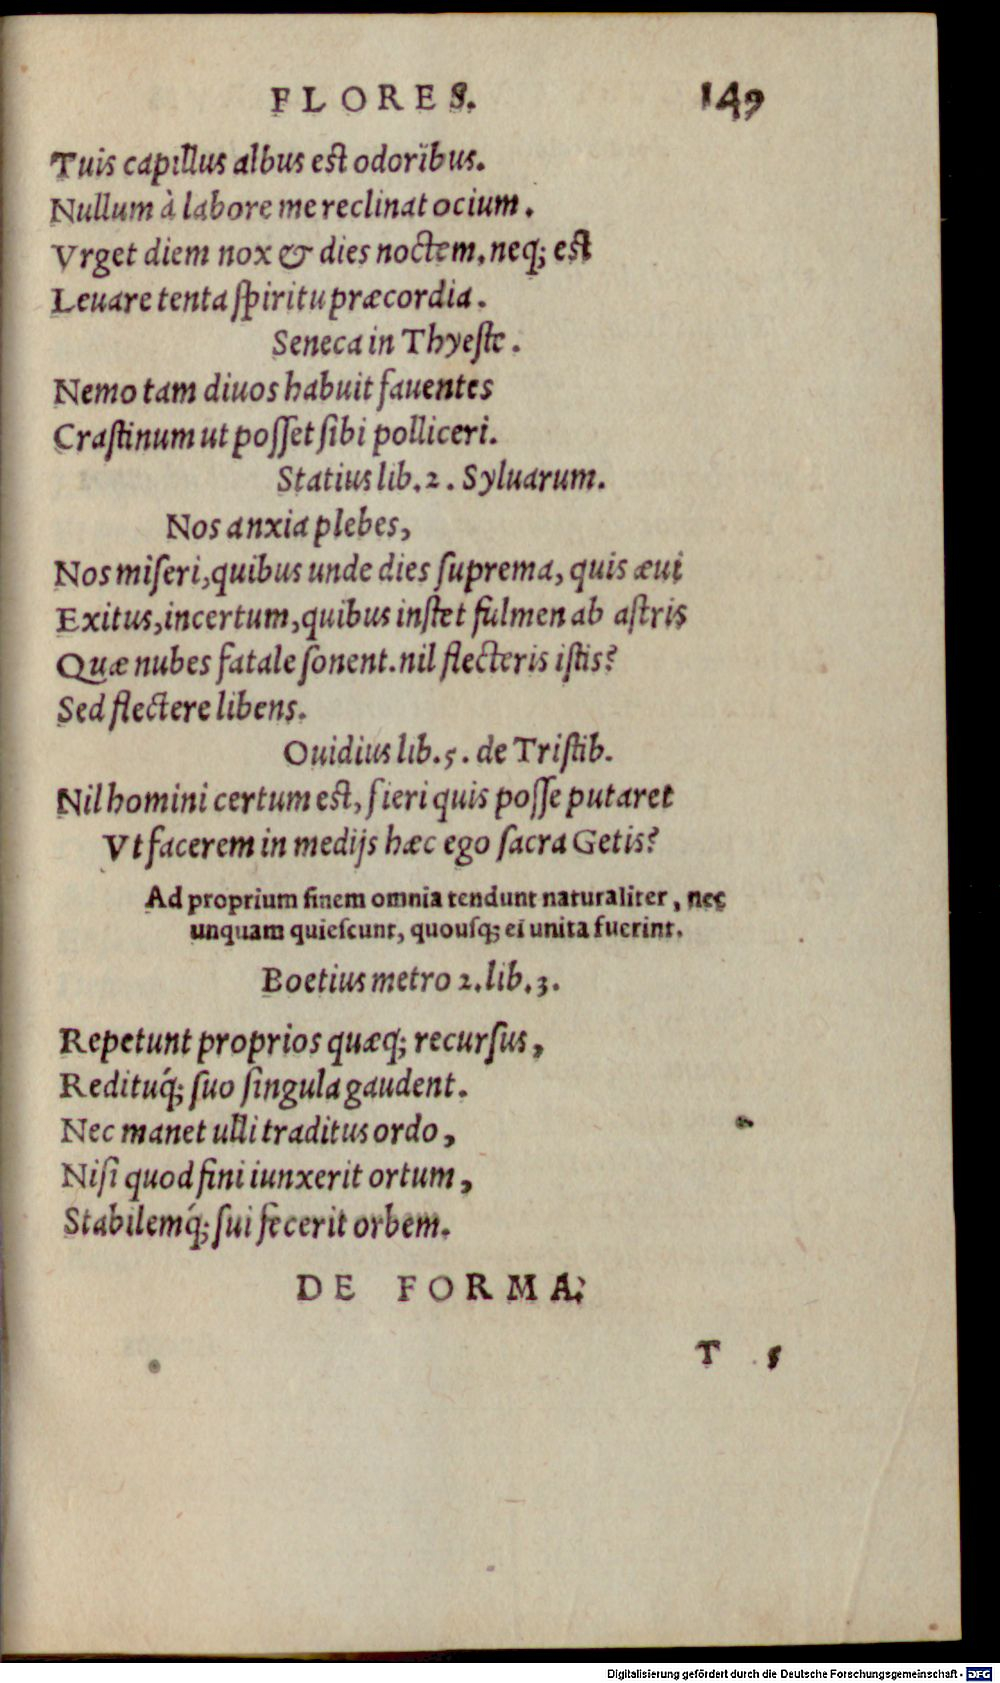 FLORES. 149
Tuis capillus albus est odoribus.
Nullum à labore me reclinat ocium.
Vrget diem nox & dies noctem, neq; est
Leuare tenta spiritu præcordia.
Seneca in Thyeste.
Nemo tam diuos habuit fauentes
Crastinum ut posset sibi polliceri.
Statius lib. 2. Syluarum.
Nos anxia plebes,
Nos miseri, quibus unde dies suprema, quis æui
Exitus, incertum, quibus instet fulmen ab astris
Quæ nubes fatale sonent. nil flecteris istis?
Sed flectere libens.
Ouidius lib. 5. de Tristib.
Nil homini certum est, fieri quis posse putaret
Vt facerem in medijs hæc ego sacra Getis?
Ad proprium finem omnia tendunt naturaliter, nec
unquam quiescunt, quousq; ei unita fuerint.
Boetius metro 2. lib. 3.
Repetunt proprios quæq; recursus,
Redituq́; suo singula gaudent.
Nec manet ulli traditus ordo,
Nisi quod fini iunxerit ortum,
Stabilemq́; sui fecerit orbem.
DE FORMA.
T 5
Digitalisierung gefördert durch die Deutsche Forschungsgemeinschaft - DFG